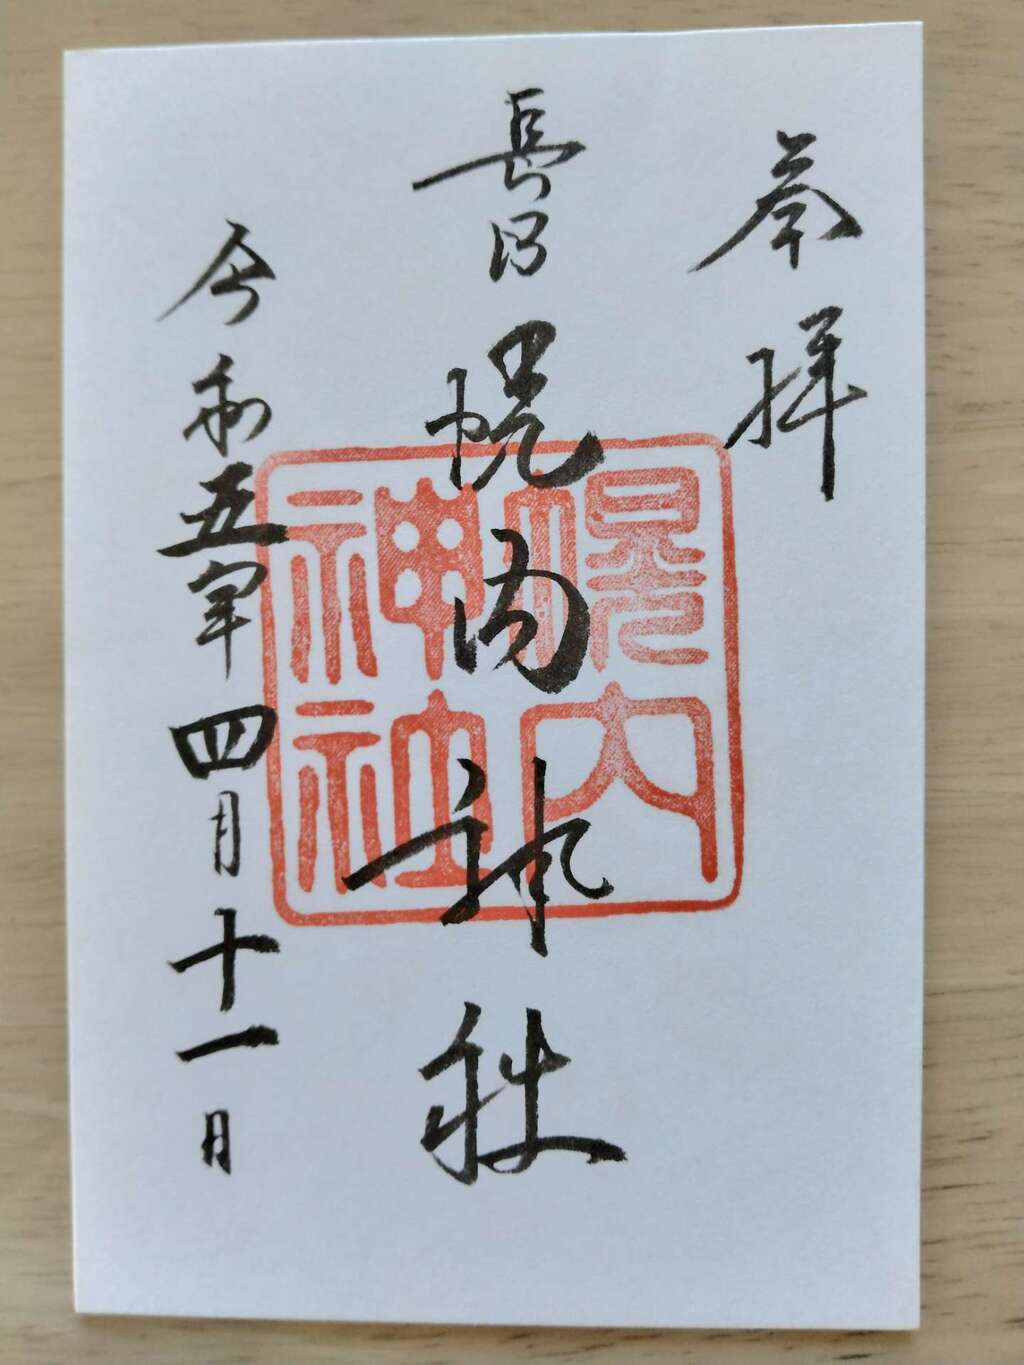 奉拝
長沼 幌内神社
令和五年四月十一日
幌内
神社